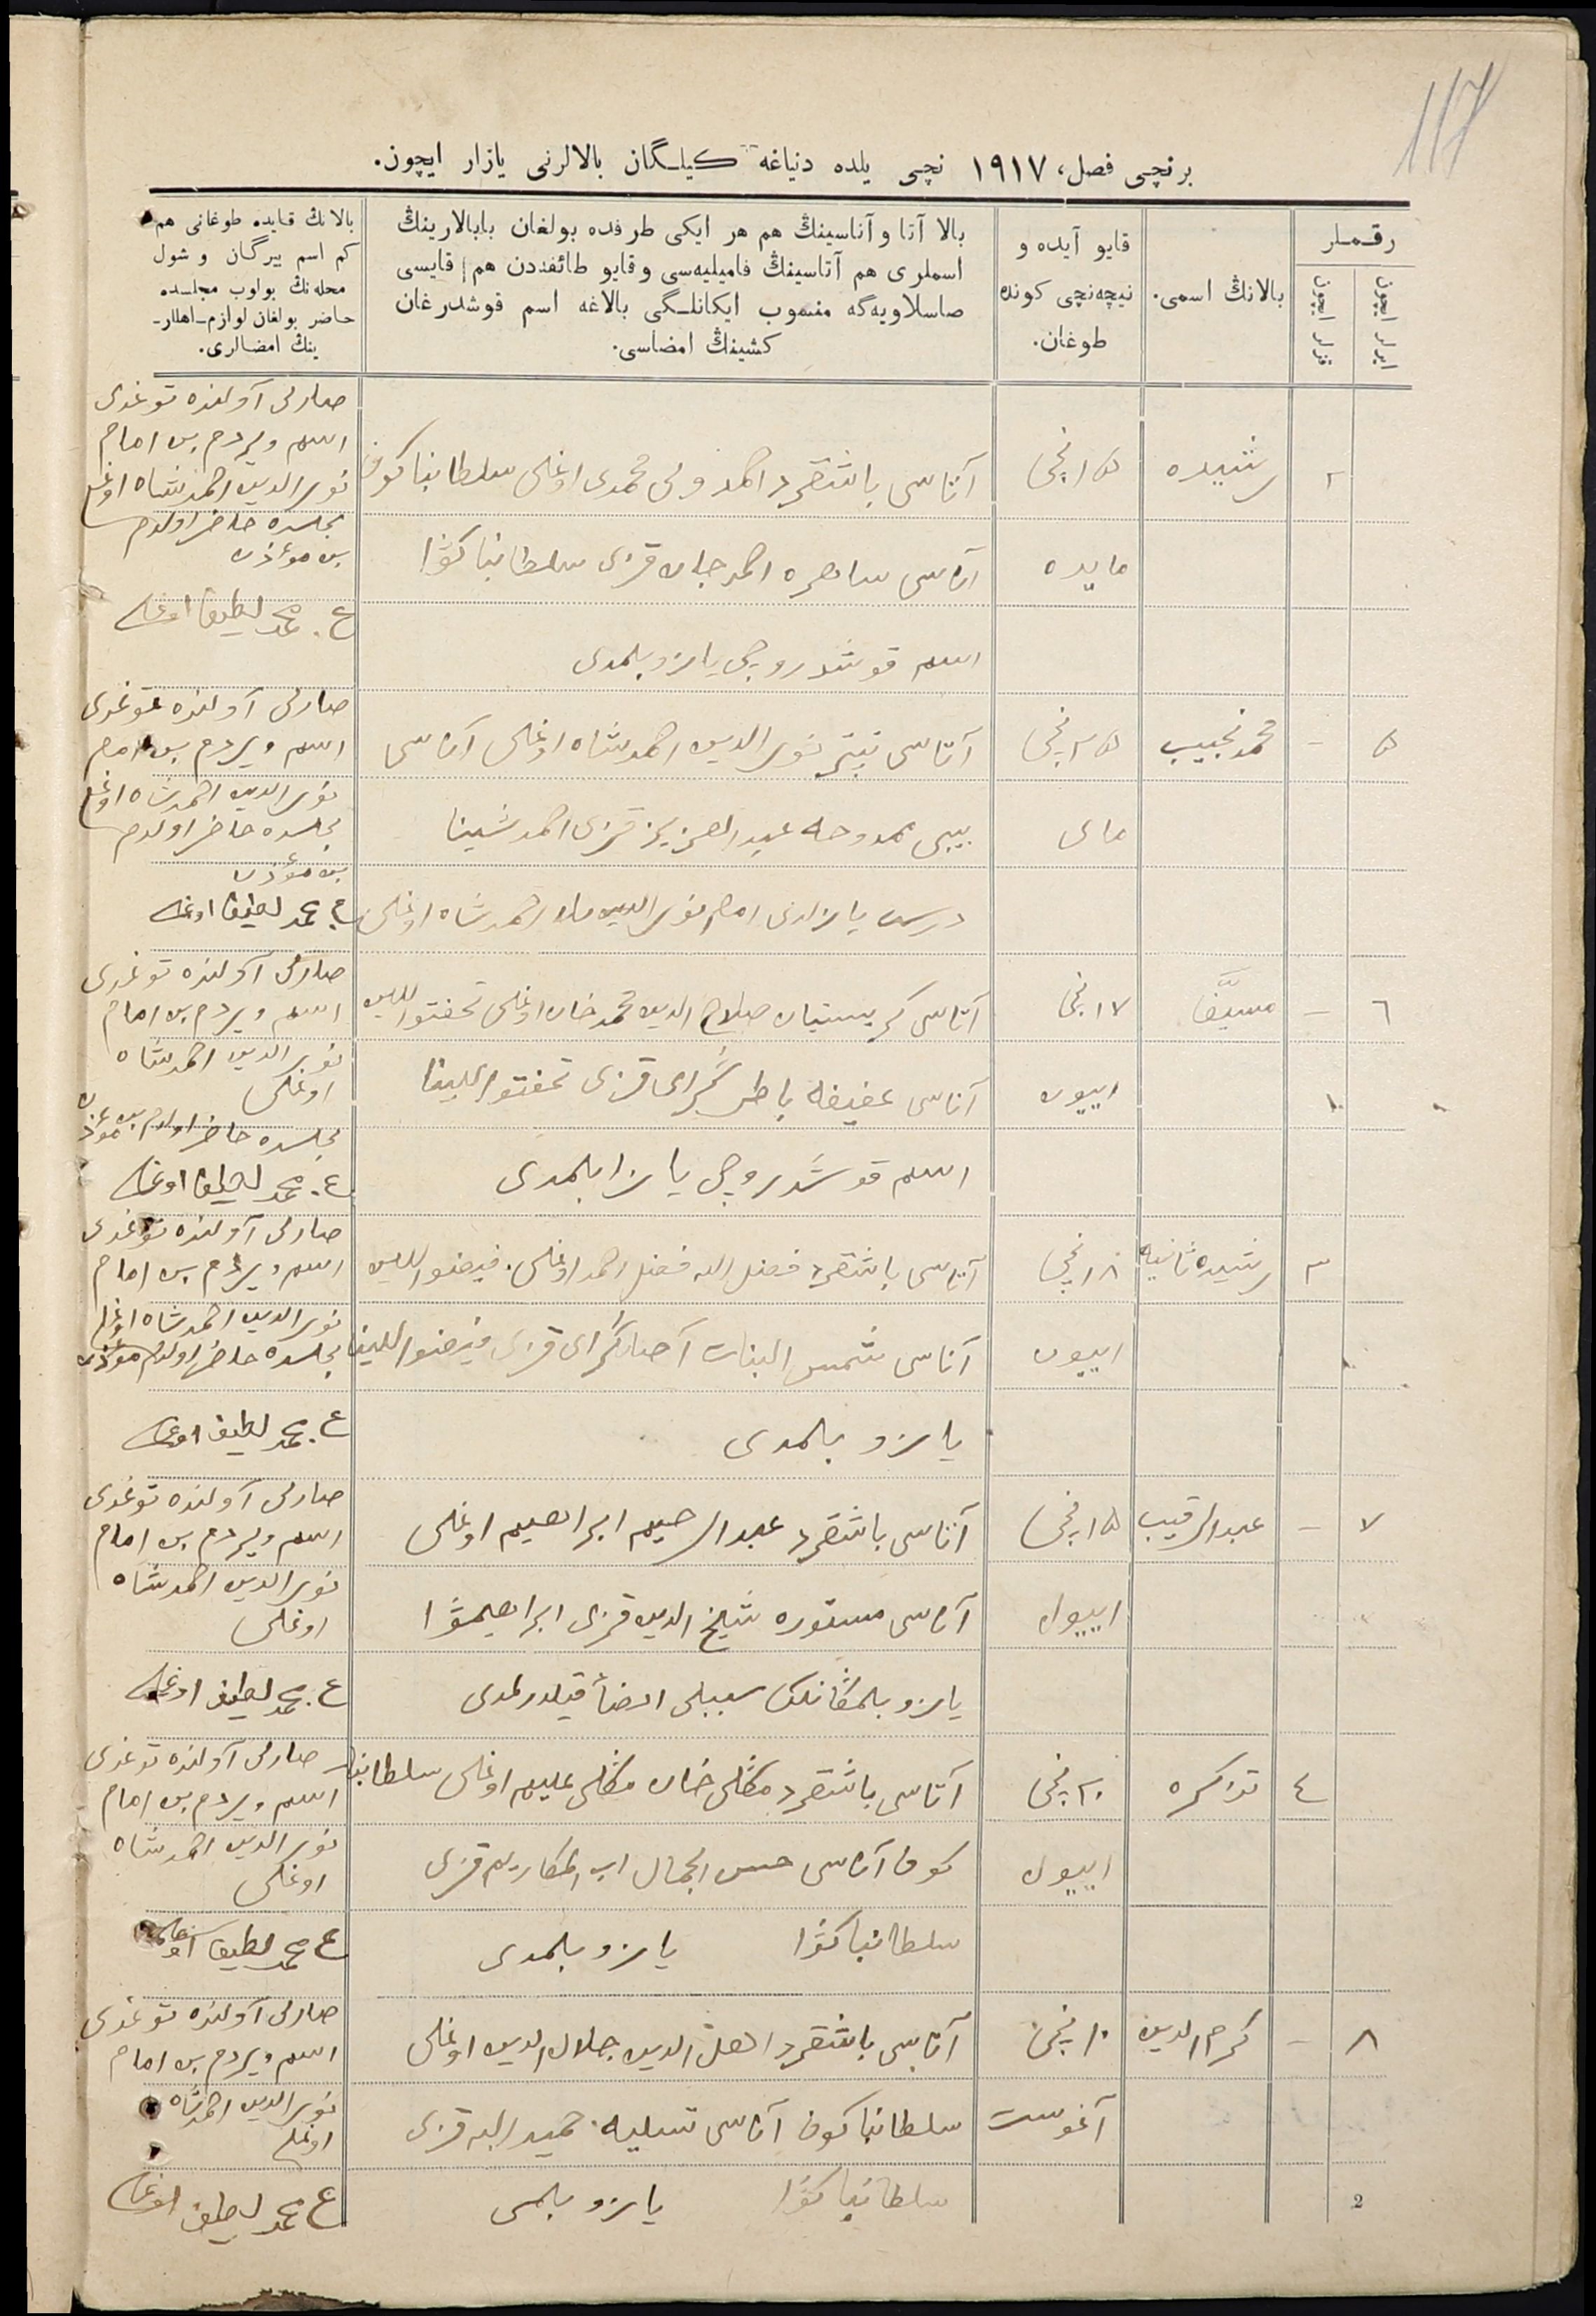 117
برنچی فصل، ١٩١٧ نچی یلده دنیاغه کیلگان بالالرنی یازار ایچون.
رقملر
ایرلر ایچون
قزلر ایچون
بالانڭ اسمی.
قایو آیده و
نیچه‌نچی کونده
طوغان.
بالا آتا و آناسینڭ هم هر ایکی طرفده بولغان بابالارینڭ
اسملری هم آتاسینڭ فامیلیه‌سی و قایو طائفه‌دن هم قایسی
صاسلاویه‌گه منسوب ایکانلگی بالاغه اسم قوشدرغان
کشینڭ امضاسی.
بالانڭ قایده طوغانی هم
کم اسم بیرگان و شول
محله‌نڭ بولوب مجلسده
حاضر بولغان لوازم اهللار-
ینڭ امضالری.
٢
رشیده
١٥نچی
مایده
آتاسی باشقرد احمد ولی محمدی اوغلی سلطانباکوف
آناسی ساهره احمدجان قزی سلطانباکوا
اسم قوشدروچی یازو بلمدی
صارلی آولنده توغدی
اسم ویردم بن امام
نورالدین احمدشاه اوغلی
مجلسده حاضر اولدم
بن مؤذن
ع. محمد لطیف اوغلی
٥
–
محمد نجیب
٢٥نچی
مای
آتاسی تبتر نورالدین احمدشاه اوغلی آناسی
بیبی ممدوحه عبدالعزیز قزی احمدشینا
درس یازلدی امام نورالدین ملا احمدشاه اوغلی
صارلی آولنده توغدی
اسم ویردم بن امام
نورالدین احمدشاه اوغلی
مجلسده حاضر اولدم
بن مؤذن
ع. محمد لطیف اوغلی
٦
–
مسیّفا
١٧نچی
اییون
آتاسی کریستیان صلاح الدین محمدخان اوغلی تحفتوالدین
آناسی عفیفه باطرگرای قزی تحفتواللینا
اسم قوشدروچی یازا بلمدی
صارلی آولنده توغدی
اسم ویردم بن امام
نورالدین احمدشاه
اوغلی
مجلسده حاضر اولدم بن مؤذن
ع. محمد لطیف اوغلی
٣
رشیده ثانیه
١٨نچی
اییون
آتاسی باشقرد فضل الله فضل احمد اوغلی. فیضواللین
آناسی شمس البنات آصلگرای قزی فیضواللینا
یازو بلمدی
صارلی آولنده توغدی
اسم ویردم بن امام
نورالدین احمدشاه اوغلی
مجلسده حاضر اولدم مؤذن
ع. محمد لطیف اوغلی
٧
–
عبدالرقیب
١٥نچی
اییول
آتاسی باشقرد عبدالرحیم ابراهیم اوغلی
آناسی مستوره شیخ الدین قزی ابراهیموا
یازو بلمگانلک سببلی امضأ قیلدرلمدی
صارلی آولنده توغدی
اسم ویردم بن امام
نورالدین احمدشاه
اوغلی
ع. محمد لطیف اوغلی
٤
تذاکره
٢٠نچی
اییول
آتاسی باشقرد منگلی خان منگلی علیم اوغلی سلطانبا
کوف آناسی حسن الجمال اب المکاریم قزی
سلطانباکوا یازو بلمدی
صارلی آولنده توغدی
اسم ویردم بن امام
نورالدین احمدشاه
اوغلی
ع محمد لطیف اوغلی
٨
–
کرم الدین
١٠نچی
آغوست
آتاسی باشقرد اهل الدین جلال الدین اوغلی
سلطانباکوف آناسی تسلیه حمیدالله قزی
سلطانباکوا یازو بلمی
صارلی آولنده توغدی
اسم ویردم بن امام
نورالدین احمدشاه
اوغلی
ع محمد لطیف اوغلی
2